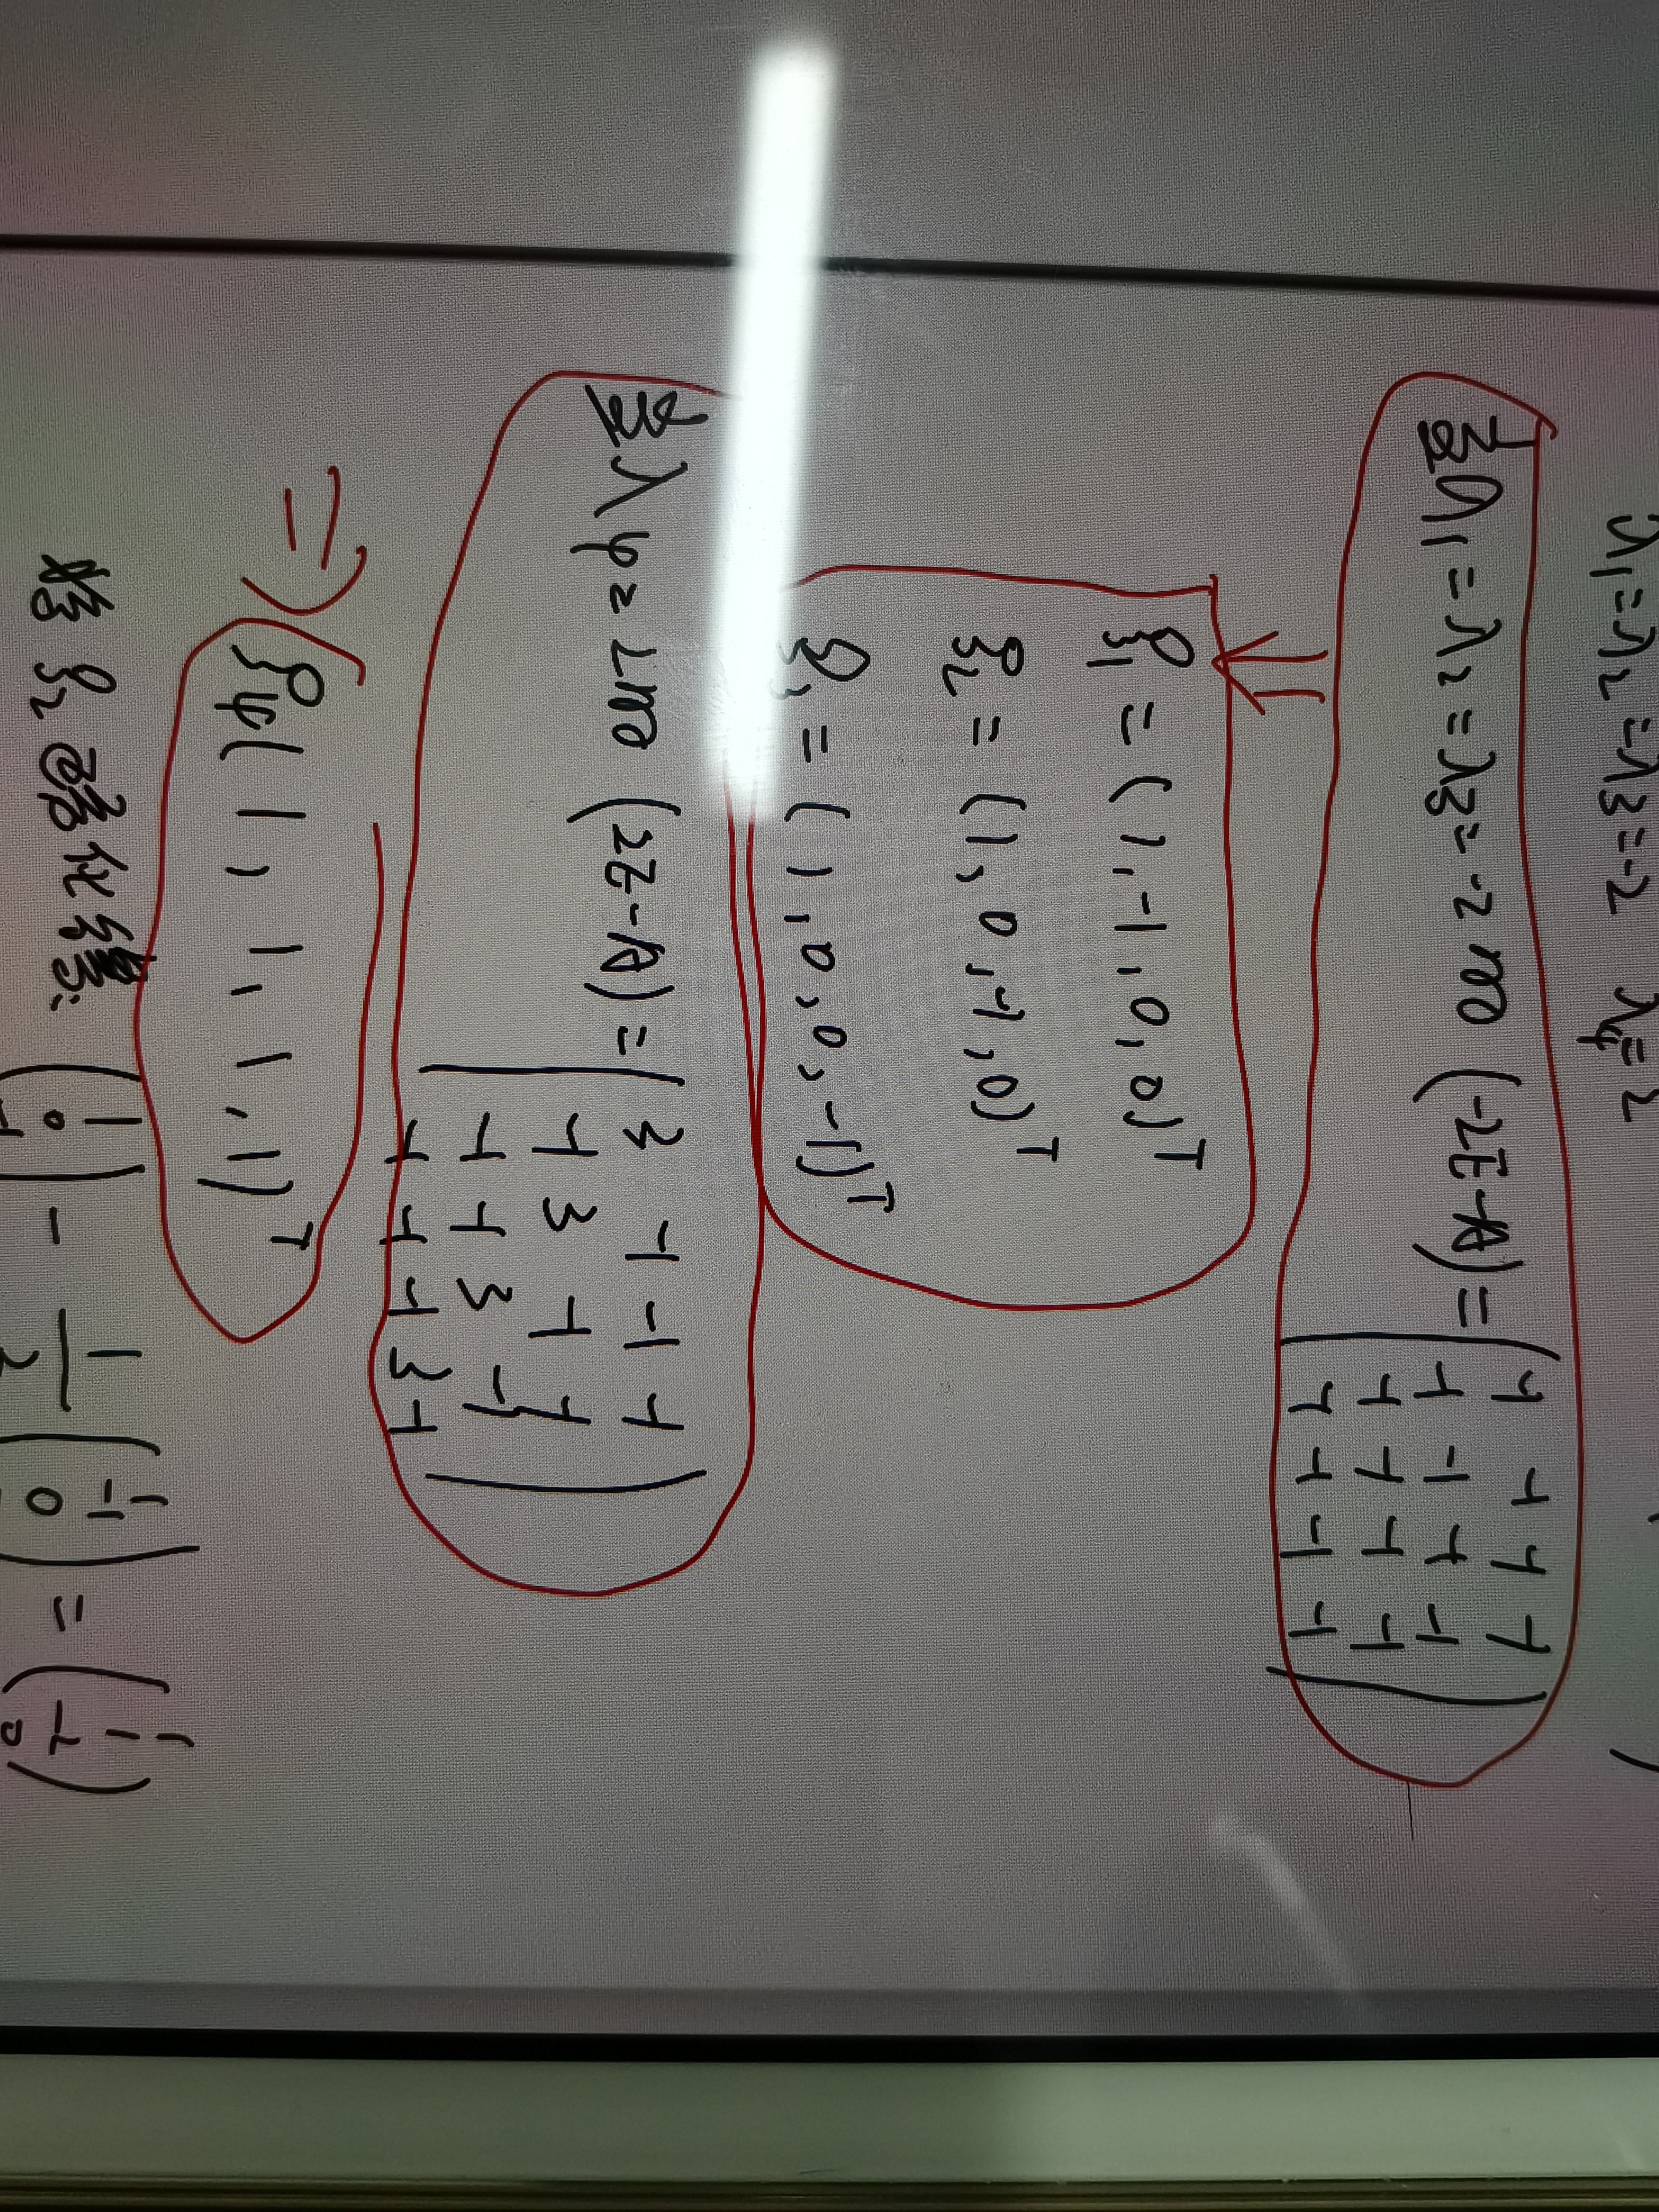 λ₁=λ₂=λ₃=-2 λ₄=2
当λ₁=λ₂=λ₃=-2时 (-2E-A)=
-1 -1 -1 -1
-1 -1 -1 -1
-1 -1 -1 -1
-1 -1 -1 -1
ξ₁=(1,-1,0,0)ᵀ
ξ₂=(1,0,-1,0)ᵀ
ξ₃=(1,0,0,-1)ᵀ
当λ₄=2时 (2E-A)=
3 -1 -1 -1
-1 3 -1 -1
-1 -1 3 -1
-1 -1 -1 3 -1
=) ξ₄(1,1,1,1)ᵀ
将ξ₂